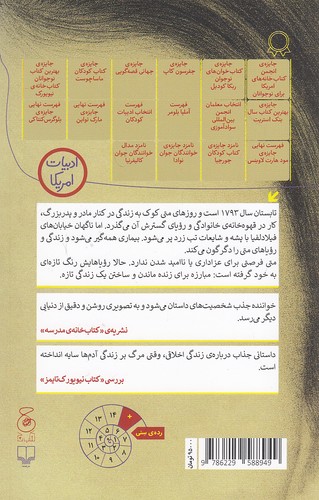 جایزه‌ی
انجمن
کتاب‌خانه‌های
امریکا
برای نوجوانان
جایزه‌ی
کتاب‌خوان‌های
نوجوان
ربکا کودیل
جایزه‌ی
جفرسون کاپ
جایزه‌ی
جهانی قصه‌گویی
جایزه‌ی
کتاب کودکان
ماساچوست
جایزه‌ی
بهترین کتاب
نوجوانان
کتاب‌خانه‌ی
نیویورک
جایزه‌ی
بهترین کتاب سال
بنک استریت
انتخاب معلمان
انجمن
بین‌المللی
سوادآموزی
فهرست
آملیا بلومر
فهرست
انتخاب ادبیات
کودکان
فهرست نهایی
جایزه‌ی
مارک تواین
فهرست نهایی
جایزه‌ی
بلوگرس کنتاکی
فهرست نهایی
جایزه‌ی
مود هارت لاولس
نامزد جایزه‌ی
کتاب کودکان
جورجیا
نامزد جایزه‌ی
خوانندگان جوان
نوادا
نامزد مدال
خوانندگان جوان
کالیفرنیا
ادبیات
امریکا
تابستان سال ۱۷۹۳ است و روزهای متی کوک به زندگی در کنار مادر و پدربزرگ،
کار در قهوه‌خانه‌ی خانوادگی و رؤیای گسترش آن می‌گذرد. اما ناگهان خیابان‌های
فیلادلفیا با پشه و شایعات تب زرد پر می‌شود. بیماری همه‌گیر می‌شود و زندگی و
رؤیاهای متی را دگرگون می‌کند.
متی فرصتی برای عزاداری یا ناامید شدن ندارد. حالا رؤیاهایش رنگ تازه‌ای
به خود گرفته است: مبارزه برای زنده ماندن و ساختن یک زندگی تازه.
خواننده جذب شخصیت‌های داستان می‌شود و به تصویری روشن و دقیق از دنیایی
دیگر می‌رسد.
نشریه‌ی «کتاب‌خانه‌ی مدرسه»
داستانی جذاب درباره‌ی زندگی اخلاقی، وقتی مرگ بر زندگی آدم‌ها سایه انداخته
است.
بررسی «کتاب نیویورک تایمز»
رده‌ی سنی
+
۱۴
۱۳
۱۲
۱۱
۱۰
۹
۸
۹۵۰۰۰ تومان
9 786229 588949